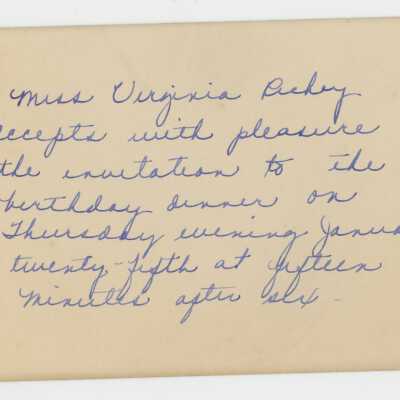 Miss Virginia Richey
accepts with pleasure
the invitation to the
birthday dinner on
Thursday evening Janua
twenty-fifth at fifteen
minutes after six.